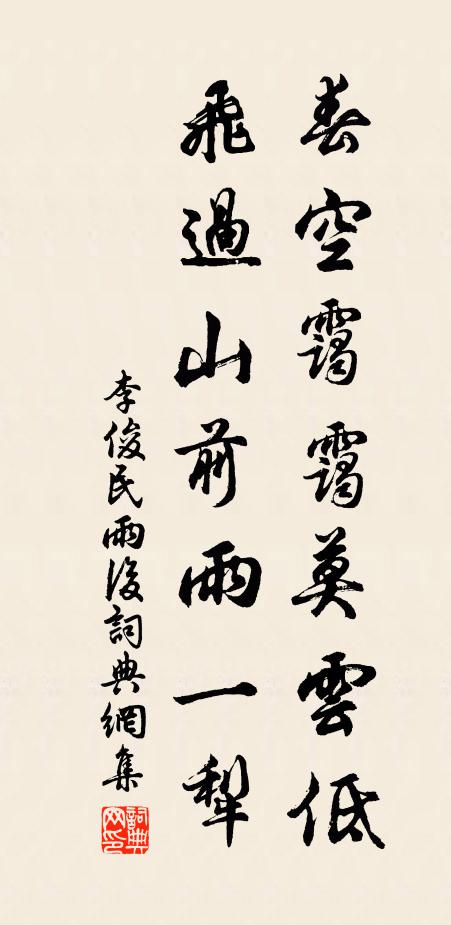 春空靄靄莫雲低
飛過山前雨一犁
李俊民雨後詞典網集
詞典网印